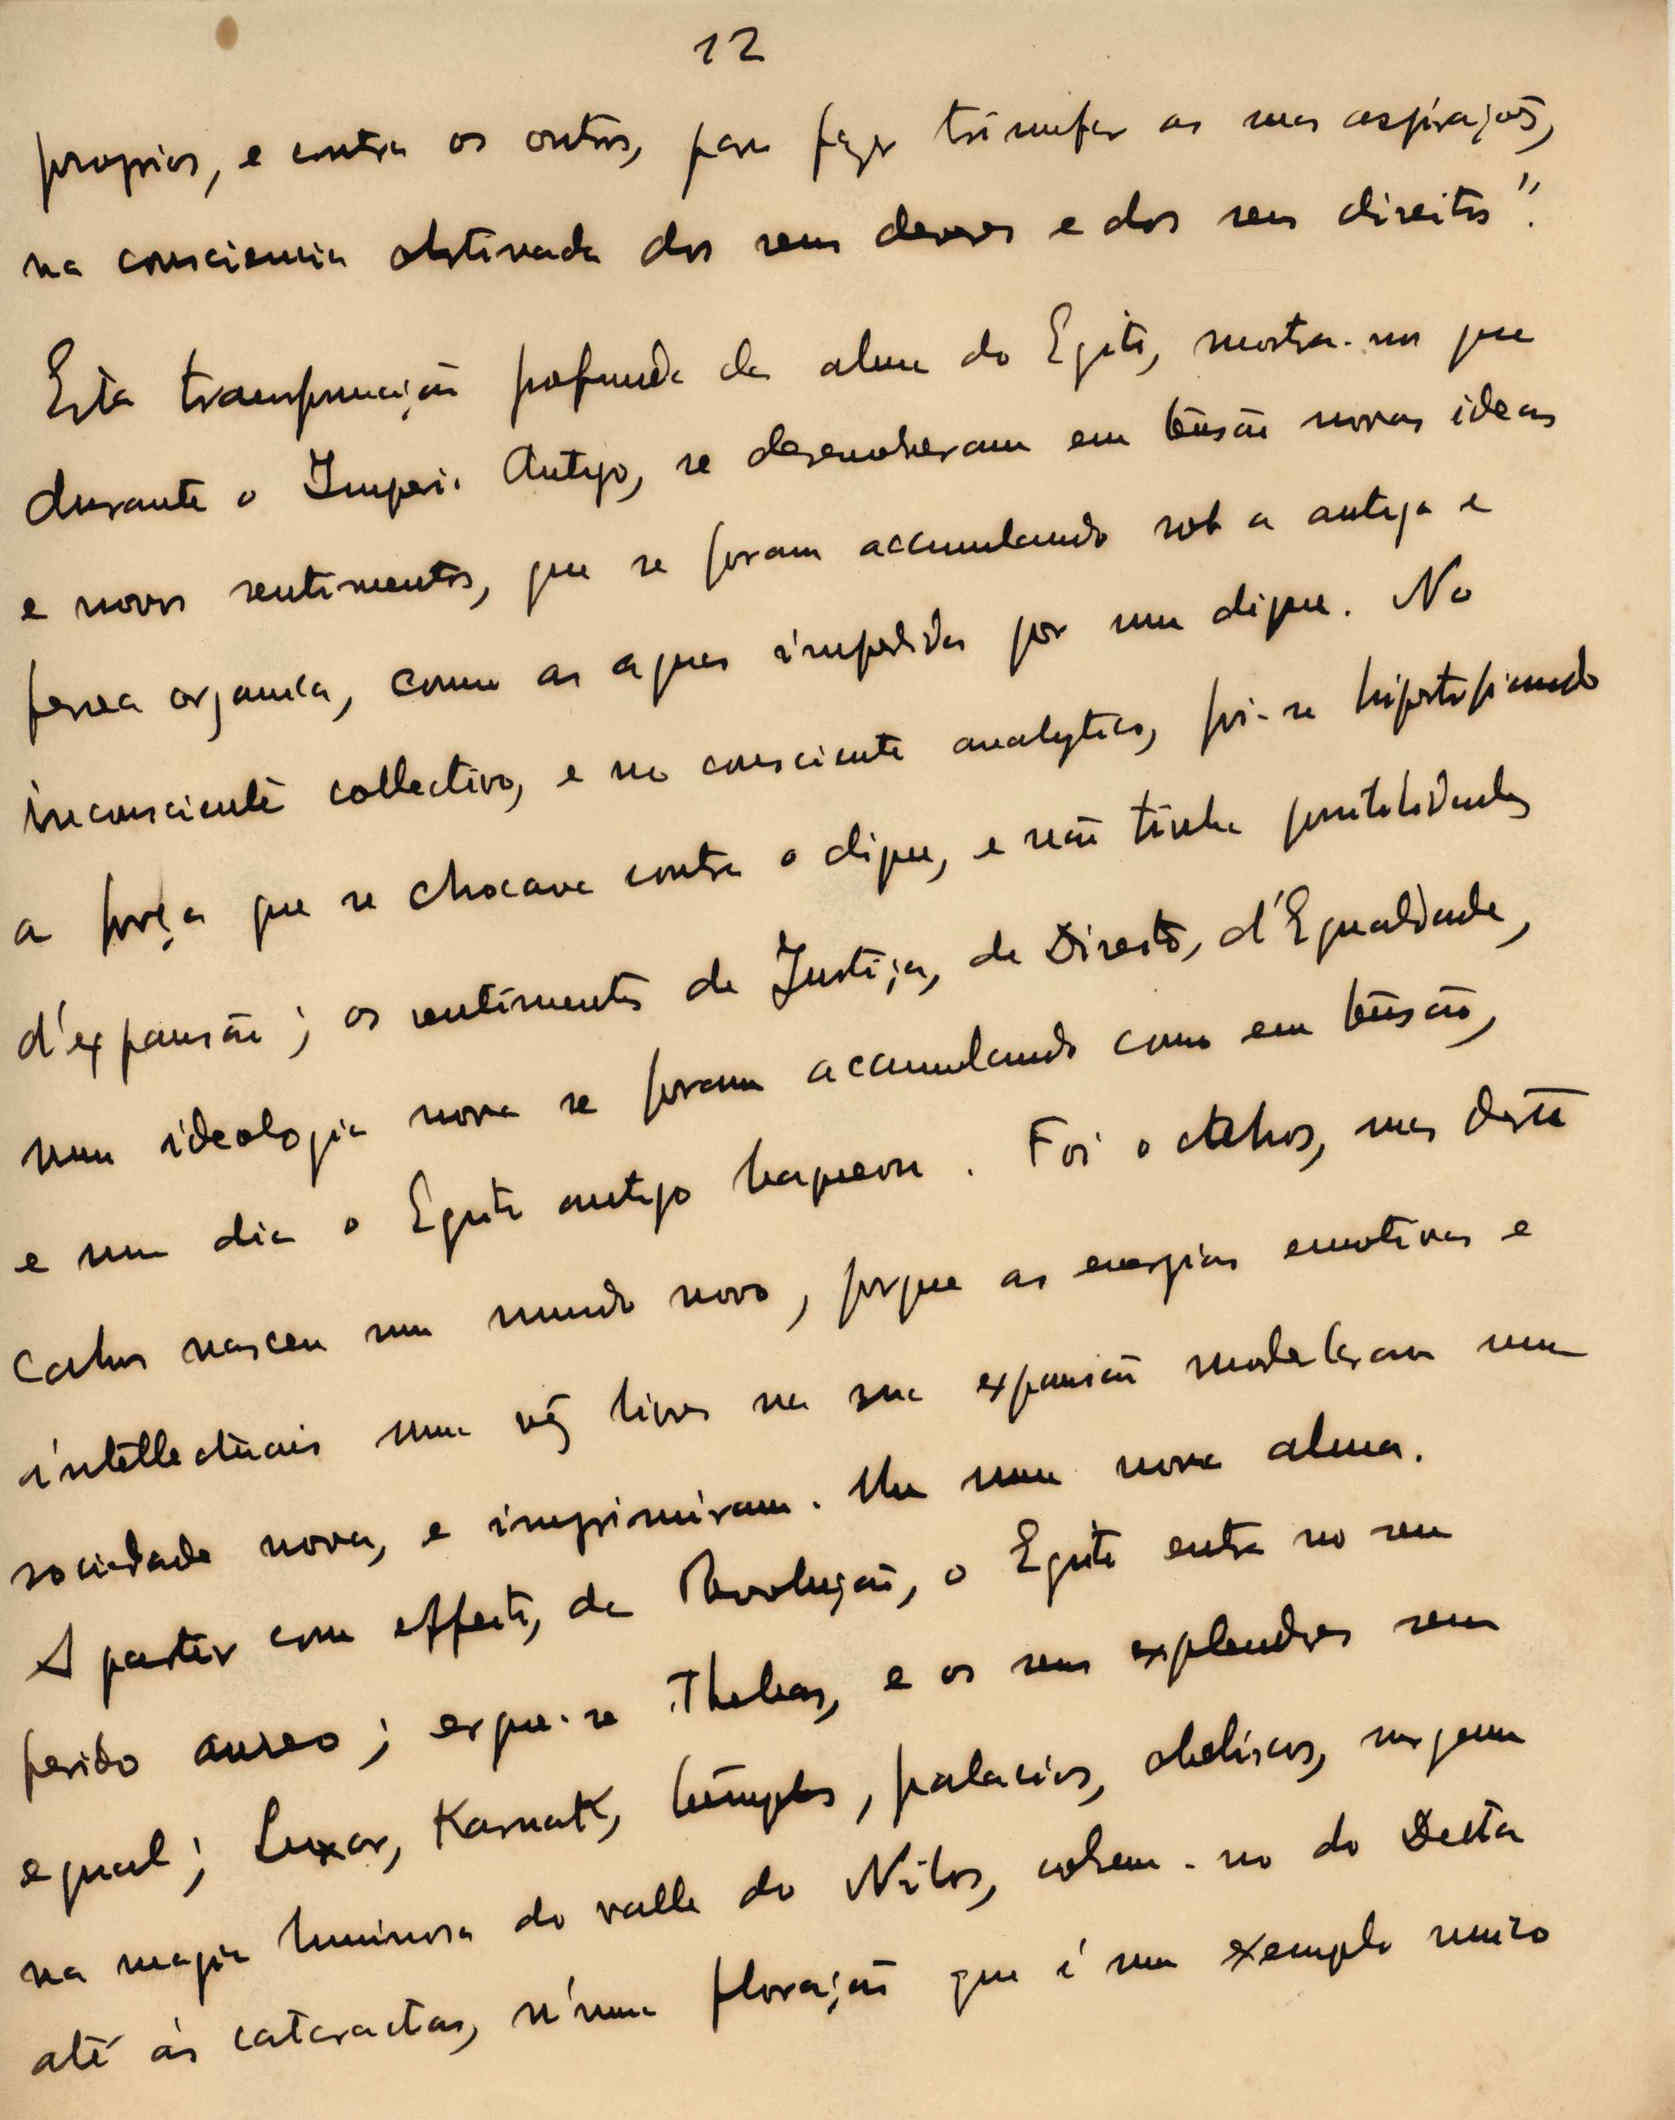 12
proprios, e contra os outros, para fazer triumfar as suas aspirações,
na consciencia obstinada dos seus deveres e dos seus direitos".
Esta transformação profunda da alma do Egito, mostra-nos que
durante o Imperio Antigo, se desenvolveram em tensão novas ideas
e novos sentimentos, que se foram accumulando sob a antiga e
ferrea organica, como as aguas impedidas por um dique. No
inconsciente collectivo, e no consciente analytico, foi-se hipertrofiando
a força que se chocava contra o dique, e não tinha possibilidades
d'expansão; os sentimentos de Justiça, de Direito, d'Egualdade,
numa ideologia nova se foram accumulando como em tensão,
e um dia o Egito antigo baqueou. Foi o cahos, mas deste
cahos nasceu um mundo novo, porque as energias emotivas e
intellectuais uma vez livres na sua expansão modelaram uma
sociedade nova, e imprimiram-lhe uma nova alma.
A partir com effeito, da Revolução, o Egito entra no seu
periodo aureo; ergue-se Thebas, e os seus explendores sem
egual; Luxor, Karnak, templos, palacios, obeliscos, surgem
na magia luminosa do valle do Nilos, cobrem-no do Delta
até ás cataractas, n'uma floração que é um exemplo unico